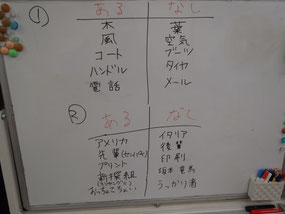 ① ある なし
木 葉
風 空気
コート ブーツ
ハンドル タイヤ
電話 メール
② ある なし
アメリカ イタリア
先輩(センパイ) 後輩
プリント 印刷
新撰組 坂本竜馬
おっちょこちょい うっかり者